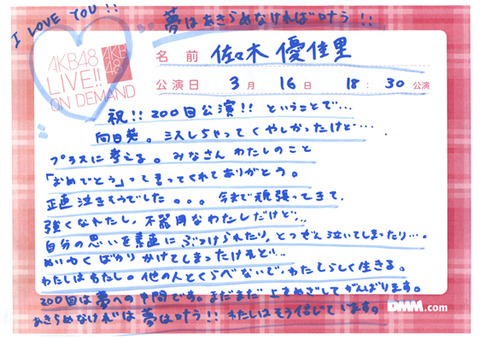 I LOVE YOU!!
夢はあきらめなければ叶う!!
AKB48
LIVE!!
ON DEMAND
AKB
48
名前 佐々木 優佳里
公演日 3月 16日 18:30公演
祝!! 200回公演!! ということで…
向日葵。ミスしちゃってくやしかったけど…
プラスに考える。みなさん わたしのこと
「おめでとう」って言ってくれてありがとう。
正直泣きそうでした。。。今まで頑張ってきて、
強くなれたし、不器用なわたしだけど…
自分の思いを素直にぶつけられたり、とつぜん泣いてしまったり…。
めいわくばかりかけてしまったけれど…
わたしはわたし。他の人とくらべないで、わたしらしく生きる。
200回は夢への中間です。まだまだ 上をめざしてがんばります。
あきらめなければ夢は叶う!! わたしはそう信じています。
DMM.com